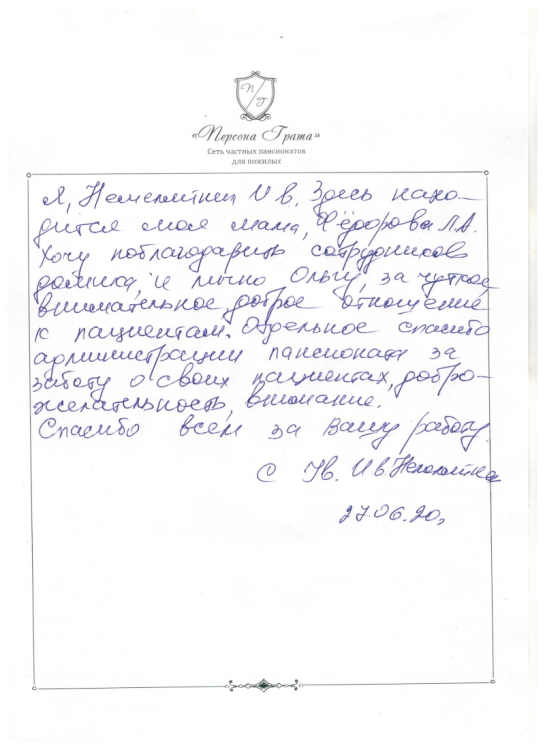 П
Г
«Персона Грата»
Сеть частных пансионатов
для пожилых
Я, И В. Здесь нахо-
дится моя мама, Фёдорова Л.А.
Хочу поблагодарить сотрудников
домика, и лично Ольгу, за чуткое,
внимательное, доброе отношение
к пациентам. Отдельное спасибо
администрации пансионата за
заботу о своих пациентах, добро-
желательность, внимание.
Спасибо всем за Вашу работу.
С Ув. И В
27.06.20г